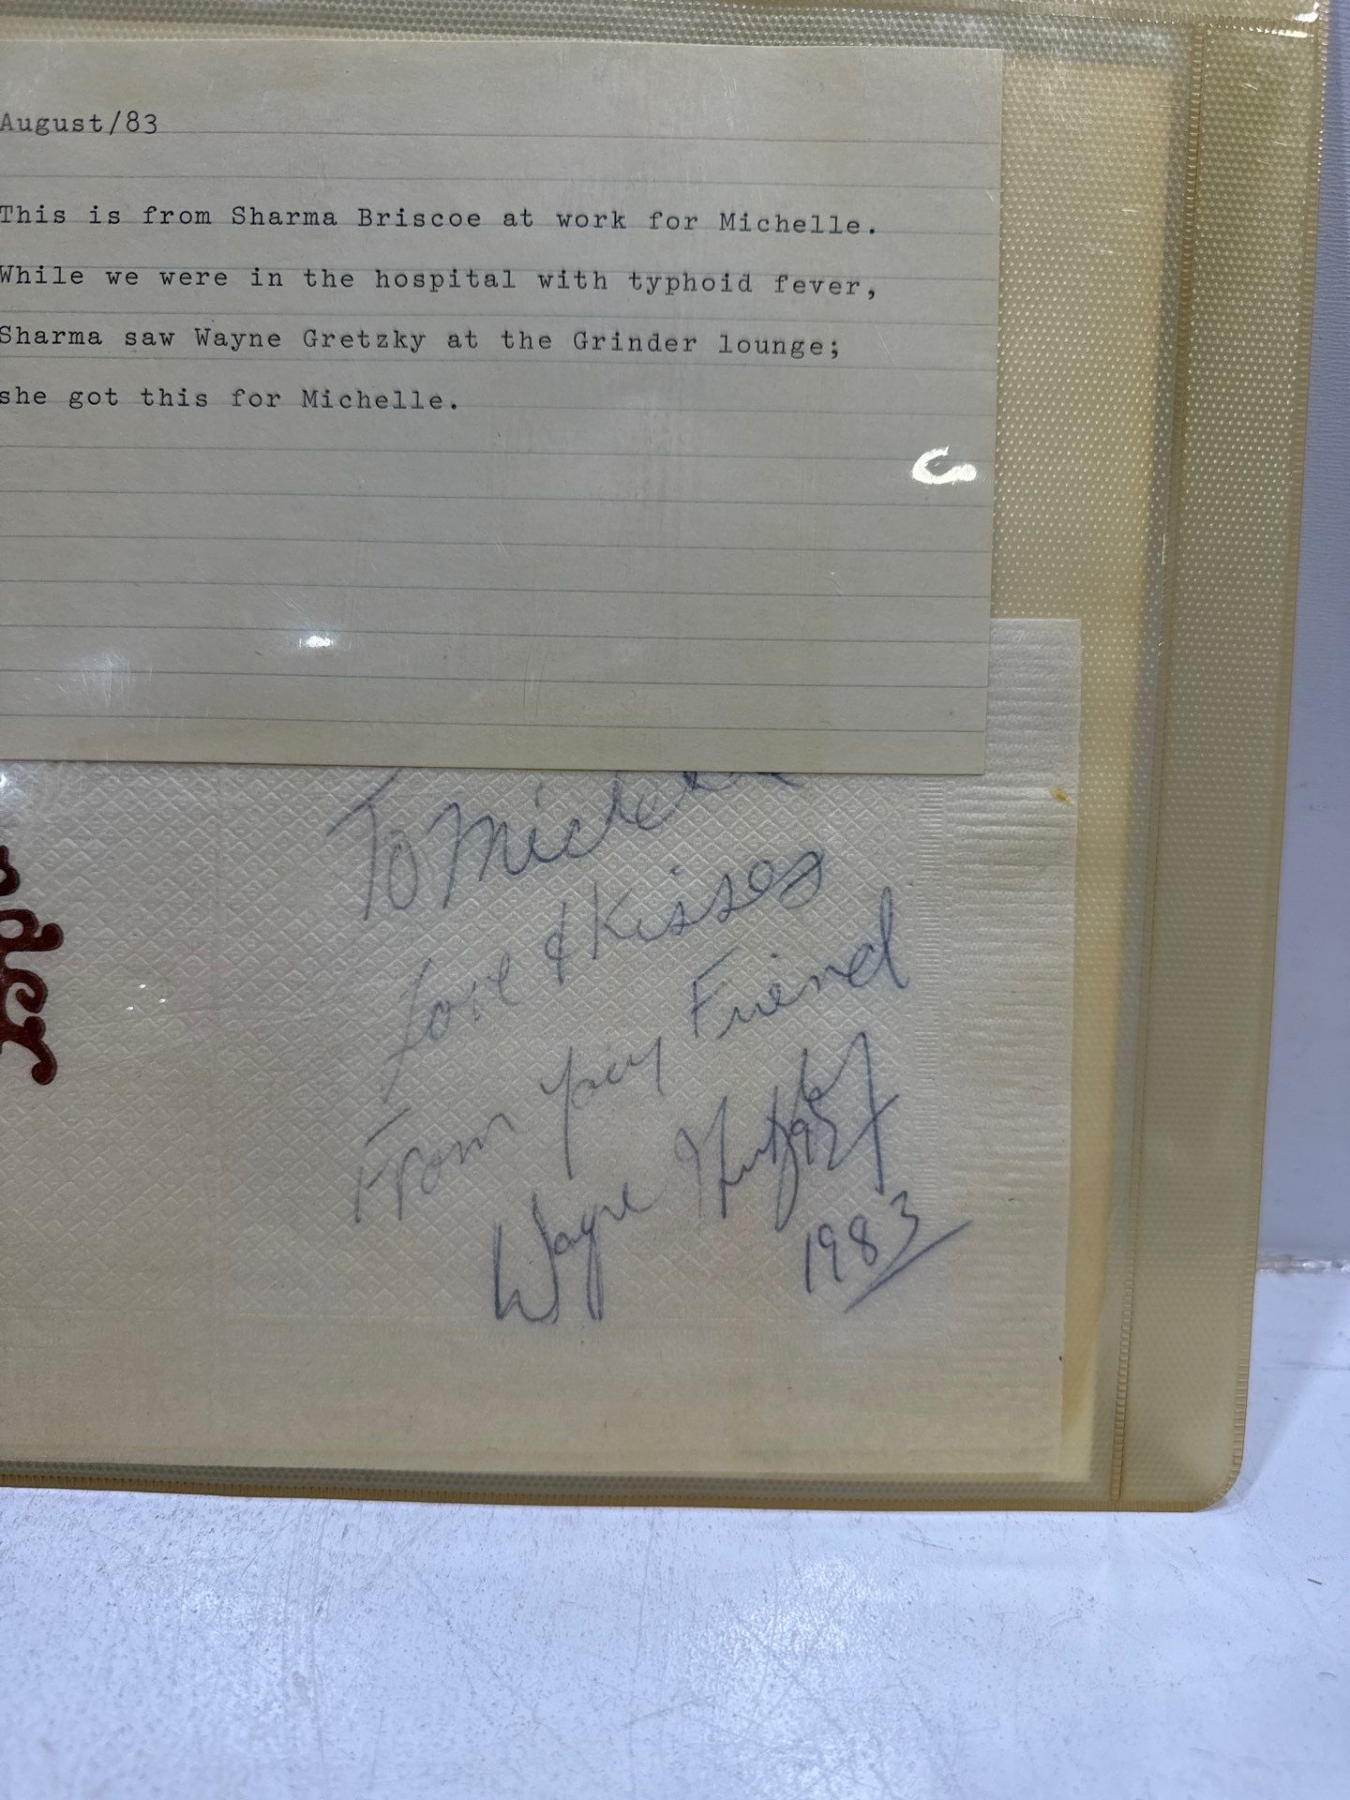 August/83
This is from Sharma Briscoe at work for Michelle.
While we were in the hospital with typhoid fever,
Sharma saw Wayne Gretzky at the Grinder lounge;
she got this for Michelle.
To Michelle
Love & Kisses
From your Friend
Wayne Gretzky 99
1983
nder